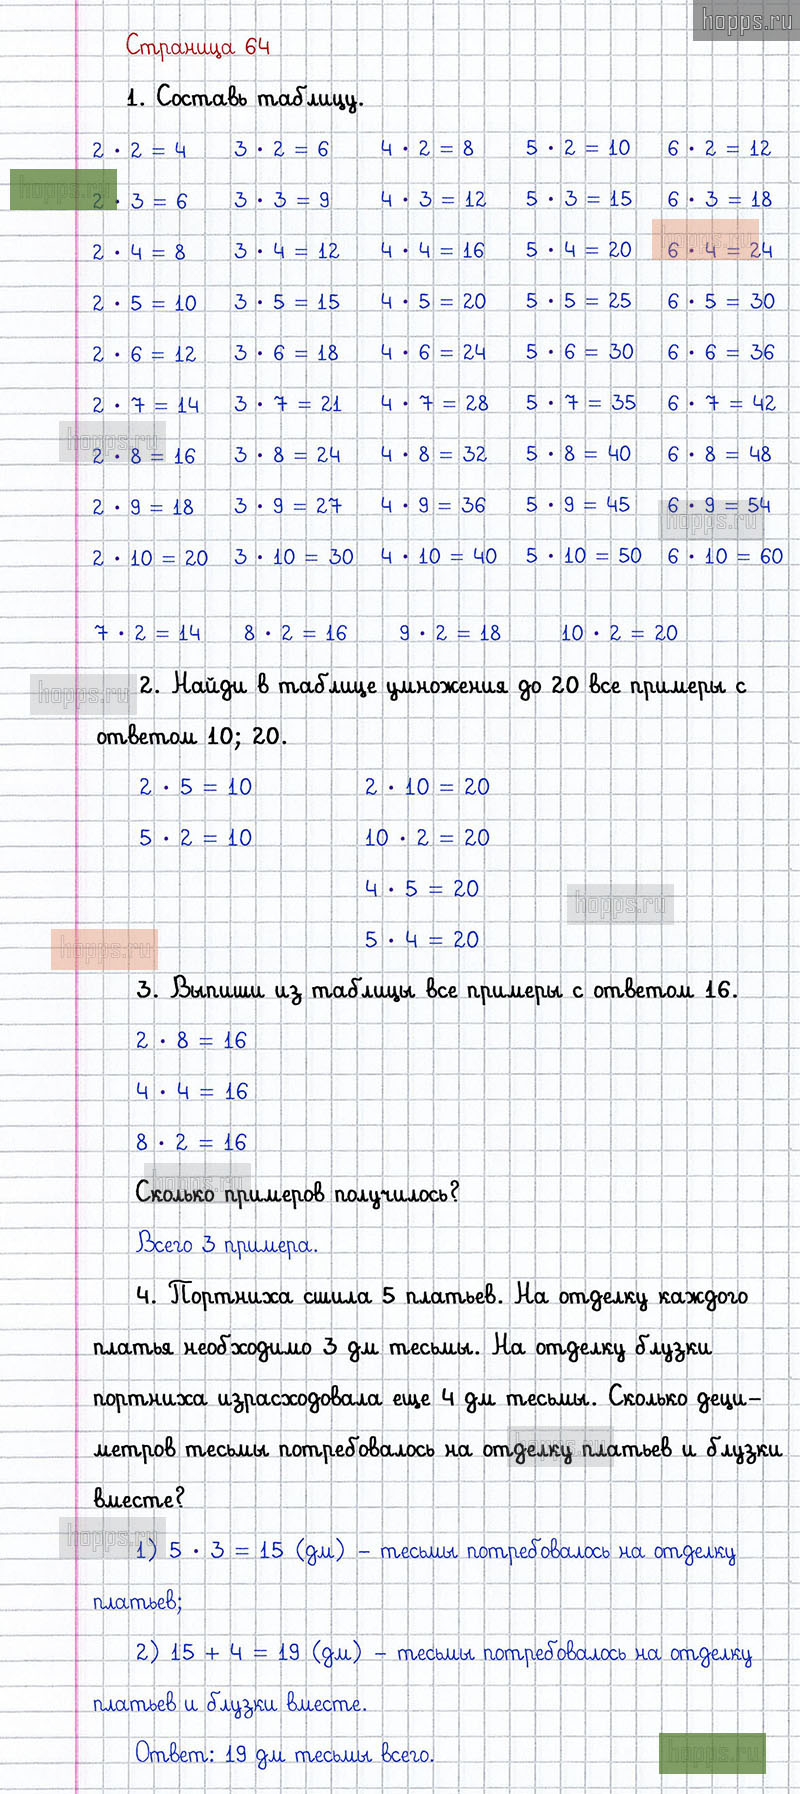 hopps.ru
Страница 64
1. Составь таблицу.
2 · 2 = 4 3 · 2 = 6 4 · 2 = 8 5 · 2 = 10 6 · 2 = 12
hopps.ru
2 · 3 = 6 3 · 3 = 9 4 · 3 = 12 5 · 3 = 15 6 · 3 = 18
hopps.ru
2 · 4 = 8 3 · 4 = 12 4 · 4 = 16 5 · 4 = 20 6 · 4 = 24
2 · 5 = 10 3 · 5 = 15 4 · 5 = 20 5 · 5 = 25 6 · 5 = 30
2 · 6 = 12 3 · 6 = 18 4 · 6 = 24 5 · 6 = 30 6 · 6 = 36
2 · 7 = 14 3 · 7 = 21 4 · 7 = 28 5 · 7 = 35 6 · 7 = 42
hopps.ru
2 · 8 = 16 3 · 8 = 24 4 · 8 = 32 5 · 8 = 40 6 · 8 = 48
2 · 9 = 18 3 · 9 = 27 4 · 9 = 36 5 · 9 = 45 6 · 9 = 54
hopps.ru
2 · 10 = 20 3 · 10 = 30 4 · 10 = 40 5 · 10 = 50 6 · 10 = 60
7 · 2 = 14 8 · 2 = 16 9 · 2 = 18 10 · 2 = 20
hopps.ru
2. Найди в таблице умножения до 20 все примеры с
ответом 10; 20.
2 · 5 = 10 2 · 10 = 20
5 · 2 = 10 10 · 2 = 20
4 · 5 = 20
hopps.ru
5 · 4 = 20
hopps.ru
3. Выпиши из таблицы все примеры с ответом 16.
2 · 8 = 16
4 · 4 = 16
8 · 2 = 16
hopps.ru
Сколько примеров получилось?
Всего 3 примера.
4. Портниха сшила 5 платьев. На отделку каждого
платья необходимо 3 дм тесьмы. На отделку блузки
портниха израсходовала еще 4 дм тесьмы. Сколько деци-
метров тесьмы потребовалось на отделку платьев и блузки
hopps.ru
вместе?
hopps.ru
1) 5 · 3 = 15 (дм) – тесьмы потребовалось на отделку
платьев;
2) 15 + 4 = 19 (дм) – тесьмы потребовалось на отделку
платьев и блузки вместе.
Ответ: 19 дм тесьмы всего.
hopps.ru